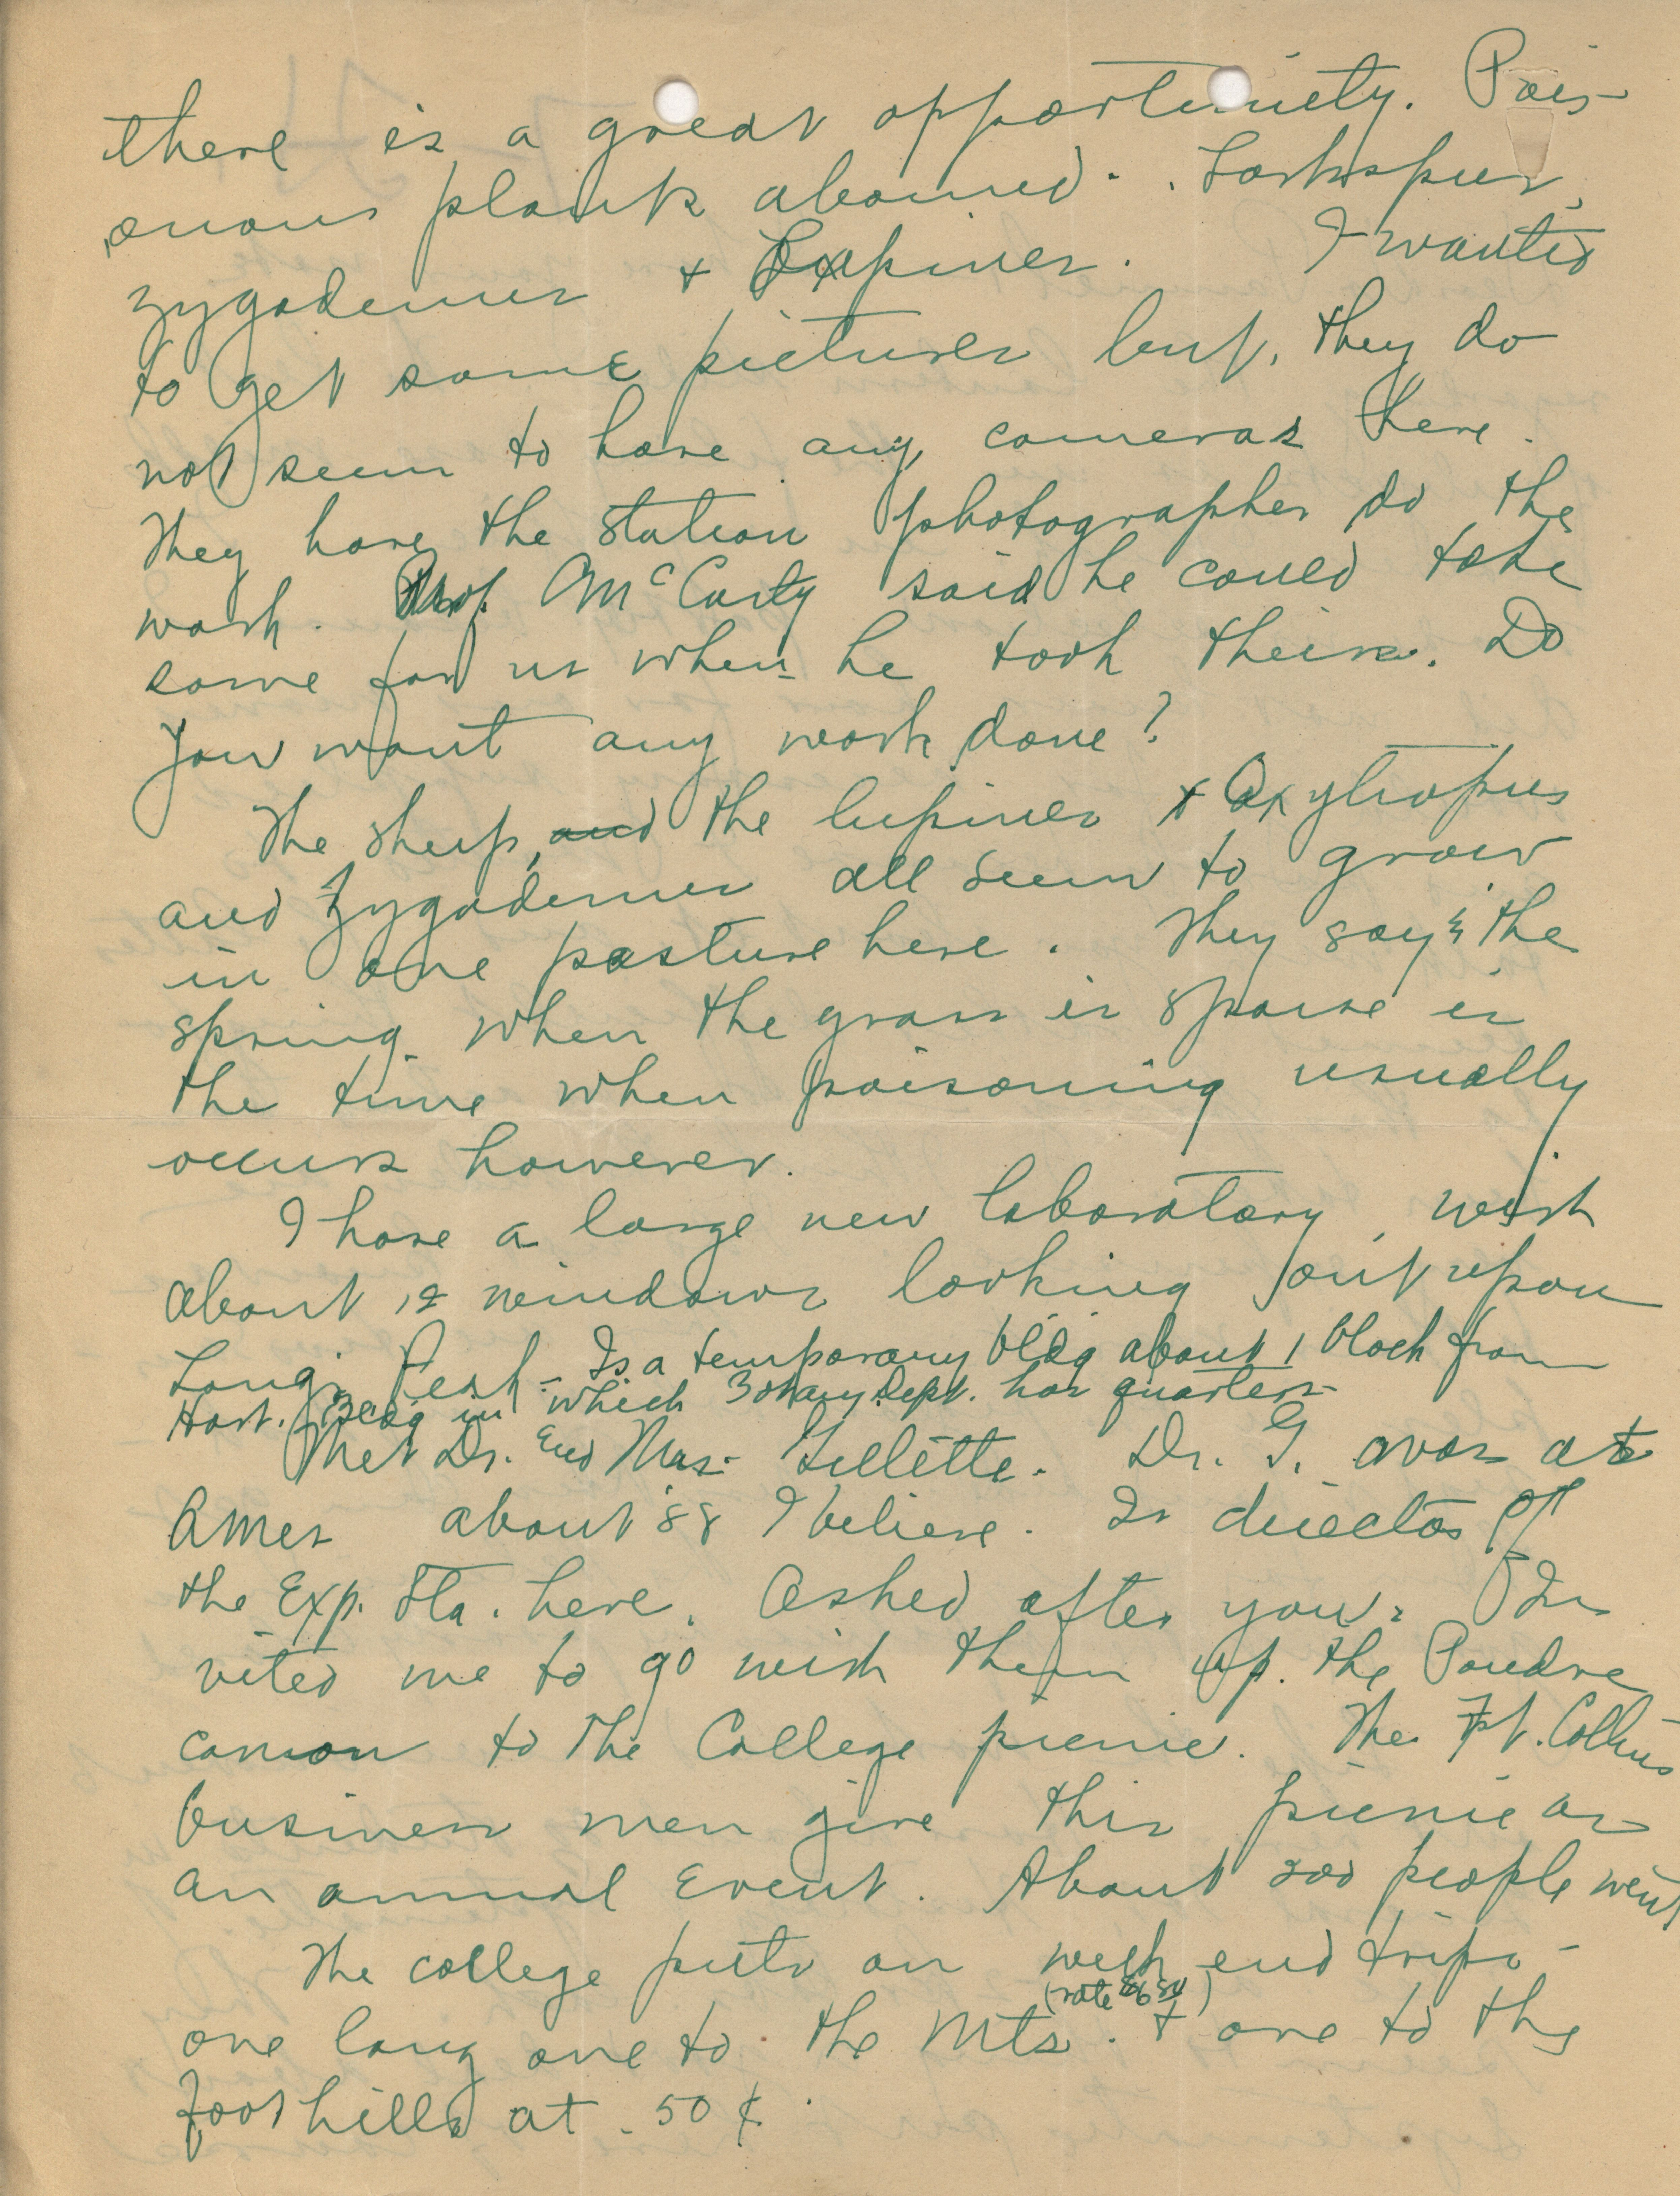 there is a great opportunity. Pois-
onous plants abound. Larkspur,
zygadenus & Lupines. I wanted
to get some pictures but, they do
not seem to have any cameras here.
They have the station photographer do the
work. Prof. McCarty said he could take
some for us when he took theirs. Do
you want any work done?
The sheep, and the lupines & Oxytropus
and Zygadenus all seem to grow
in one pasture here. They say the
spring when the grass is sparse is
the time when poisoning usually
occurs however.
I have a large new laboratory, with
about 12 windows looking out upon
Longs Peak - Is a temporary bldg about 1 block from
Hort. Bldg in which Botany Dept. has quarters
Met Dr. and Mrs. Gillette. Dr. G. was at
Ames about '88 I believe. Is director of
the Exp. Sta. here. Asked after you. In
vited me to go with them up the Poudre
canon to the College picnic. The Ft. Collins
business men give this picnic as
an annual event. About 200 people went
The college puts on week end trips -
(rate
one long one to the Mts. & one to the
foothills at .50 ¢.